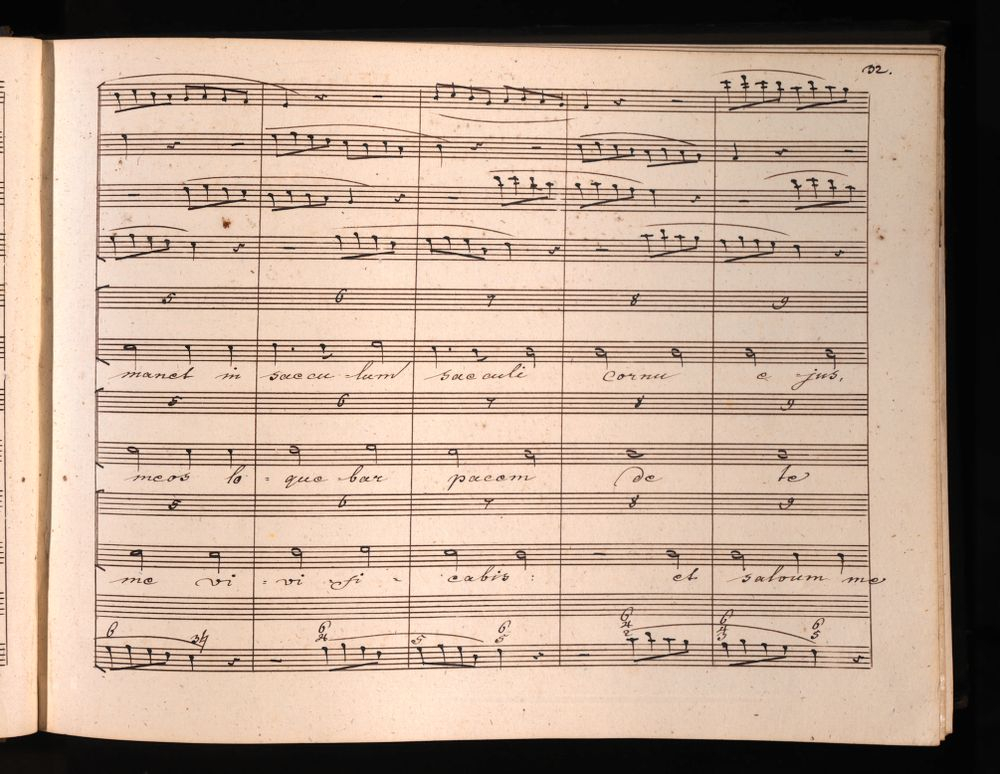 32.
5 6 7 8 9
manet in saecu - lum saeculi cornu e - jus.
5 6 7 8 9
meos lo - que - bar pacem de te
5 6 7 8 9
me vi - vi - fi - cabis : et salvum me
6 34 6 4 5 6 5 6 4 2 6 4 3 6 5